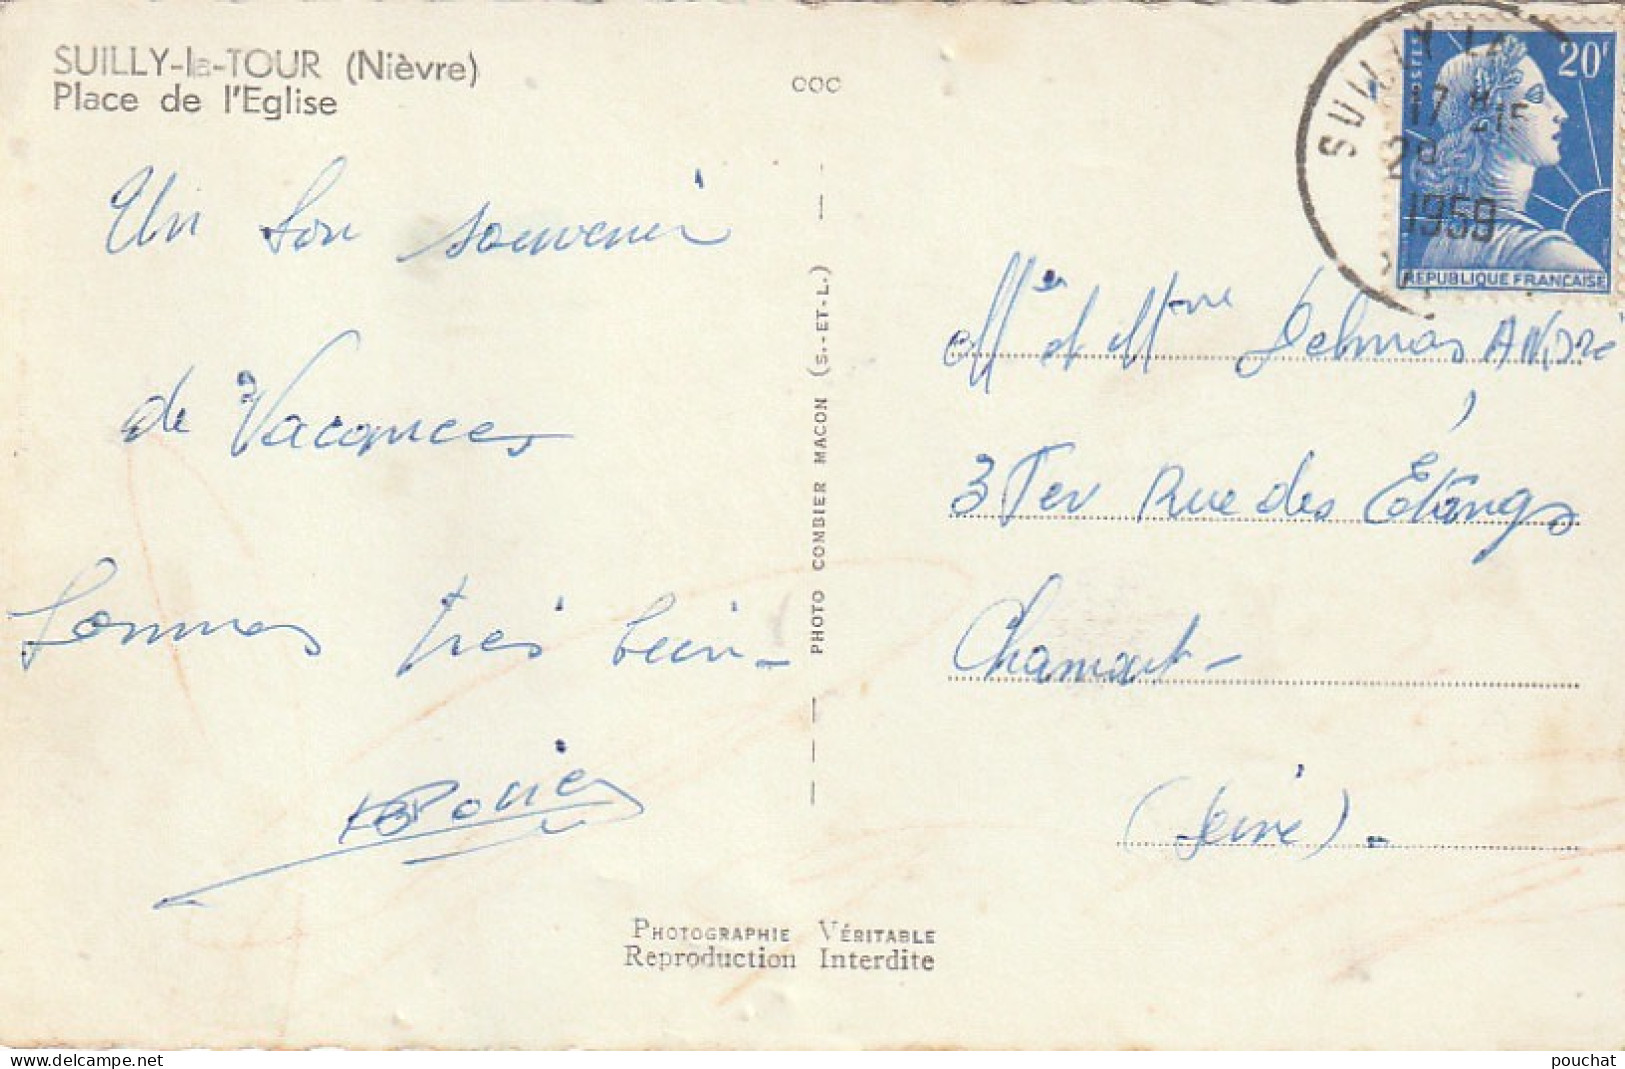 SUILLY-la-TOUR (Nièvre)
Place de l'Eglise
COC
Un bon souvenir
de Vacances
Sommes très bien -
PHOTO COMBIER MACON (S.-ET-L.)
SUILLY LA
17 H
1959
POSTES
20F
REPUBLIQUE FRANÇAISE
Mr et Mme Delmas ANDRé
3 Ter Rue des Étangs
(Seine).
PHOTOGRAPHIE VÉRITABLE
Reproduction Interdite
delcampe.net
pouchat